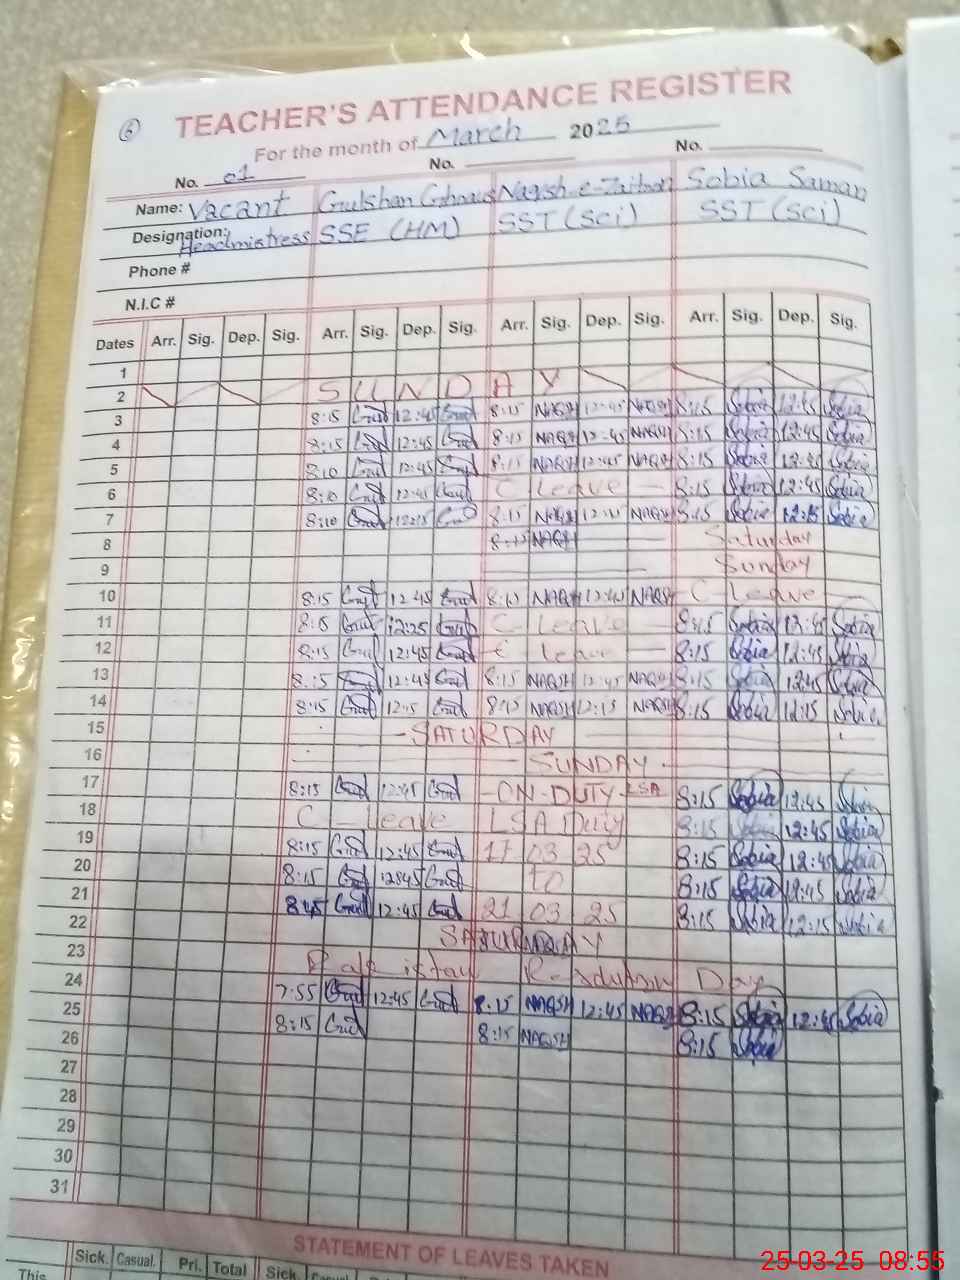 6
TEACHER'S ATTENDANCE REGISTER
For the month of March 2025
No. 01 No. No.
Name: Vacant Gulshan Nagish-e- Sobia Saman
Designation: Headmistress SSE (HM) SST (Sci) SST (Sci)
Phone #
N.I.C #
Dates Arr. Sig. Dep. Sig. Arr. Sig. Dep. Sig. Arr. Sig. Dep. Sig. Arr. Sig. Dep. Sig.
1
2 SUNDAY
3 8:15 Gul 12:45 Gul 8:15 NAQSH 12:45 NAQSH 8:15 Sobia 12:45 Sobia
4 8:15 Gul 12:45 Gul 8:15 NAQSH 12:45 NAQSH 8:15 Sobia 12:45 Sobia
5 8:10 Gul 12:45 Gul 8:15 NAQSH 12:45 NAQSH 8:15 Sobia 12:45 Sobia
6 8:10 Gul 12:45 Gul C leave 8:15 Sobia 12:45 Sobia
7 8:10 Gul 12:15 Gul 8:15 NAQSH NAQSH 8:15 Sobia 12:15 Sobia
8 8:15 NAQSH Saturday
9 Sunday
10 8:15 Gul 12:45 Gul NAQSH 12:45 NAQSH C-leave
11 8:15 Gul 12:25 Gul C-leave 8:15 Sobia 12:45 Sobia
12 8:15 Gul 12:45 Gul C leave 8:15 Sobia 12:45 Sobia
13 8:15 Gul 12:45 Gul 8:15 NAQSH 12:45 NAQSH 8:15 Sobia 12:45 Sobia
14 8:15 Gul 12:15 Gul 8:15 NAQSH 12:15 NAQSH 8:15 Sobia 12:15 Sobia
15 SATURDAY
16 SUNDAY
17 8:15 Gul 12:45 Gul ON-DUTY LSA 8:15 Sobia 12:45 Sobia
18 C-leave LSA Duty 8:15 Sobia 12:45 Sobia
19 8:15 Gul 12:45 Gul 17 03 25 8:15 Sobia 12:45 Sobia
20 8:15 Gul Gul to 8:15 Sobia 12:45 Sobia
21 8:15 Gul 12:45 Gul 21 03 25 8:15 Sobia 12:15 Sobia
22 SATURDAY
23 Day
24 7:55 Gul 12:45 Gul 8:15 NAQSH 12:45 NAQSH 8:15 Sobia 12:45 Sobia
25 8:15 Gul 8:15 NAQSH 8:15 Sobia
26
27
28
29
30
31
STATEMENT OF LEAVES TAKEN
Sick. Casual. Pri. Total Sick.
This
25-03-25 08:55